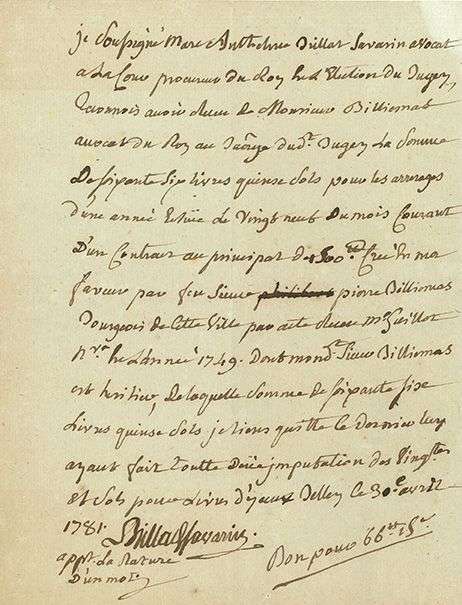 je soussigné Marc Anthelme Brillat Savarin avocat
a La Cour procureur du Roy en L'Election du Bugey
Reconnois avoir Receu de Monsieur Billiomas
avocat du Roy au Baãge dud.t Bugey La Somme
De soixante Six Livres quinse Sols pour les arrerages
d'une année Echüe Le Vingt neuf Du mois Courant
D'un Contract au principal de 1500tt Créé En ma
faveur par feu Sieur pierre Billiomas
Bourgeois de Cette Ville par acte Receu Me Guillot
nre en L'année 1749. Dont mond.t Sieur Billiomas
est heritier, De laquelle Somme de soixante Six
Livres quinse Sols je tiens quitte ce Dernier luy
ayant fait toutte Deüe imputation des Vingtes
et Sols pour Livres d'yceux Belley Le 30e avril
1781. Brillat Savarin.
appt. La Rature
D'un mot.
Bon pour 66tt 15s